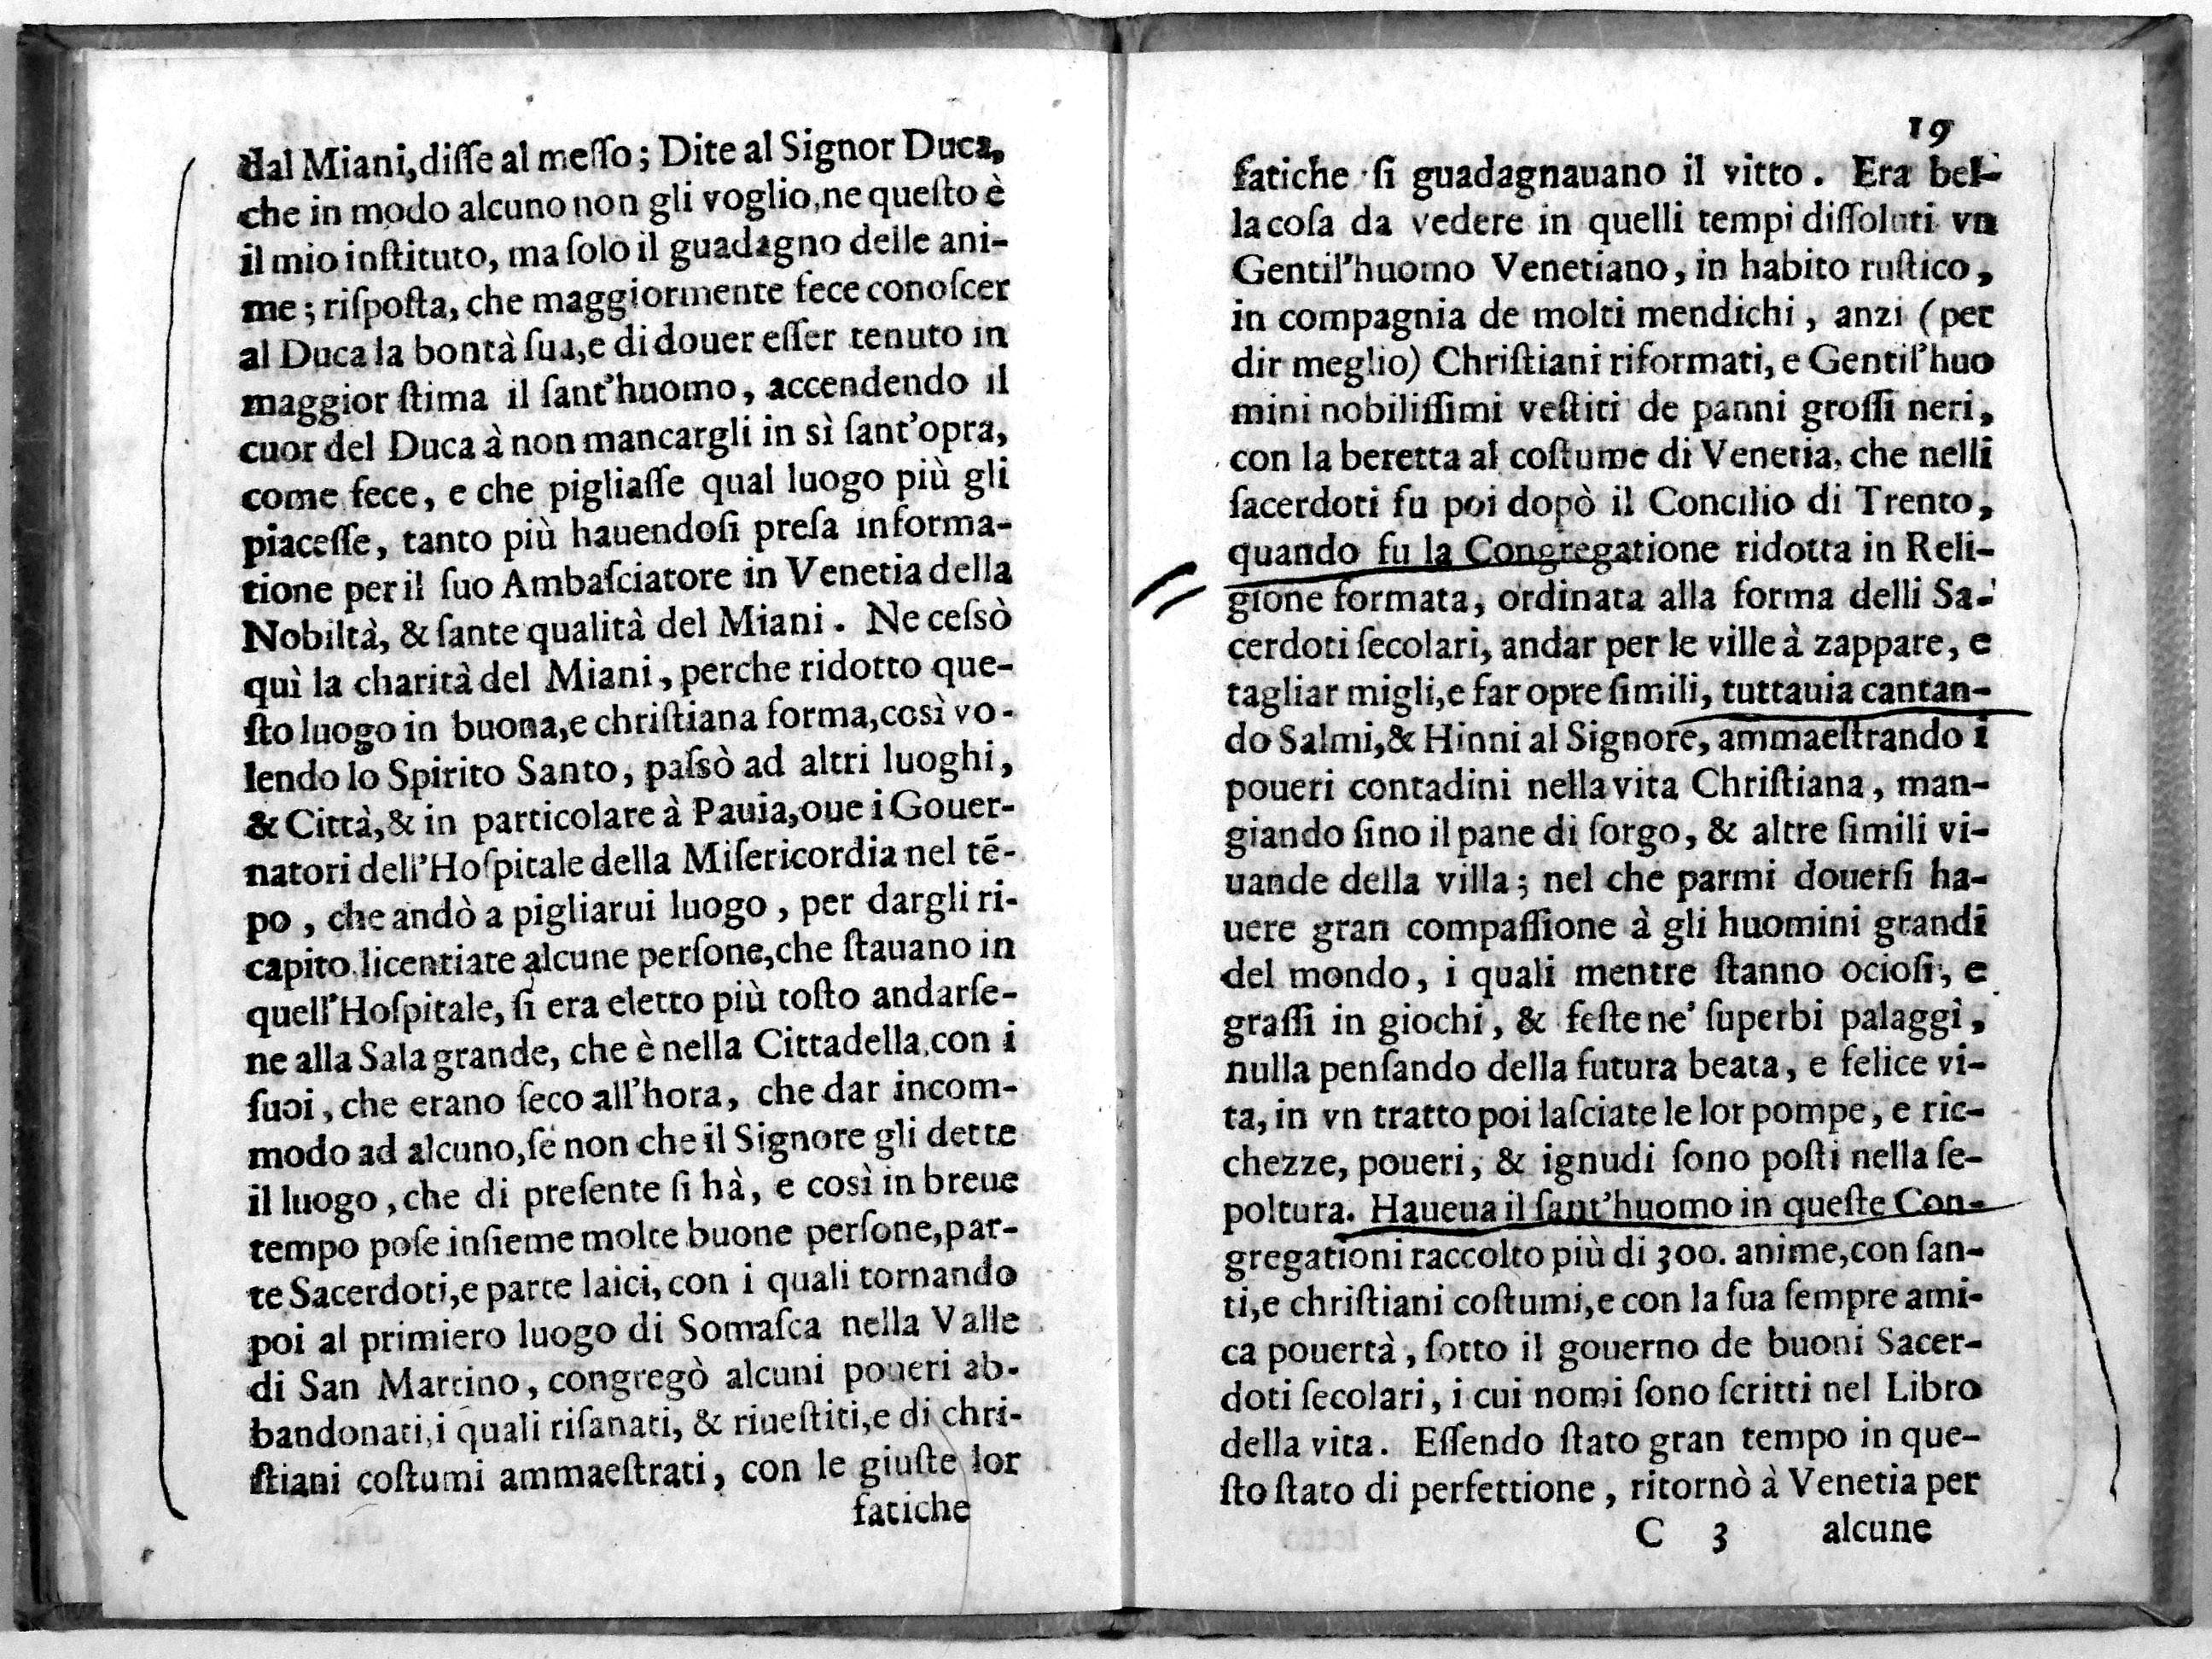 dal Miani, disse al messo; Dite al Signor Duca,
che in modo alcuno non gli voglio, ne questo è
il mio instituto, ma solo il guadagno delle ani-
me; risposta, che maggiormente fece conoscer
al Duca la bontà sua, e di douer esser tenuto in
maggior stima il sant'huomo, accendendo il
cuor del Duca à non mancargli in sì sant'opra,
come fece, e che pigliasse qual luogo più gli
piacesse, tanto più hauendosi presa informa-
tione per il suo Ambasciatore in Venetia della
Nobiltà, & sante qualità del Miani. Ne cessò
quì la charità del Miani, perche ridotto que-
sto luogo in buona, e christiana forma, così vo-
lendo lo Spirito Santo, passò ad altri luoghi,
& Città, & in particolare à Pauia, oue i Gouer-
natori dell'Hospitale della Misericordia nel tē-
po, che andò a pigliarui luogo, per dargli ri-
capito licentiate alcune persone, che stauano in
quell'Hospitale, si era eletto più tosto andarse-
ne alla Sala grande, che è nella Cittadella, con i
suoi, che erano seco all'hora, che dar incom-
modo ad alcuno, se non che il Signore gli dette
il luogo, che di presente si hà, e così in breue
tempo pose insieme molte buone persone, par-
te Sacerdoti, e parte laici, con i quali tornando
poi al primiero luogo di Somasca nella Valle
di San Martino, congregò alcuni poueri ab-
bandonati, i quali risanati, & riuestiti, e di chri-
stiani costumi ammaestrati, con le giuste lor
fatiche
19
fatiche si guadagnauano il vitto. Era bel-
la cosa da vedere in quelli tempi dissoluti vn
Gentil'huomo Venetiano, in habito rustico,
in compagnia de molti mendichi, anzi (per
dir meglio) Christiani riformati, e Gentil'huo
mini nobilissimi vestiti de panni grossi neri,
con la beretta al costume di Venetia, che nelli
sacerdoti fu poi dopò il Concilio di Trento,
quando fu la Congregatione ridotta in Reli-
gione formata, ordinata alla forma delli Sa-
cerdoti secolari, andar per le ville à zappare, e
tagliar migli, e far opre simili, tuttauia cantan-
do Salmi, & Hinni al Signore, ammaestrando i
poueri contadini nella vita Christiana, man-
giando sino il pane di sorgo, & altre simili vi-
uande della villa; nel che parmi douersi ha-
uere gran compassione à gli huomini grandi
del mondo, i quali mentre stanno ociosi, e
grassi in giochi, & feste ne' superbi palaggi,
nulla pensando della futura beata, e felice vi-
ta, in vn tratto poi lasciate le lor pompe, e ric-
chezze, poueri, & ignudi sono posti nella se-
poltura. Haueua il sant'huomo in queste Con-
gregationi raccolto più di 300. anime, con san-
ti, e christiani costumi, e con la sua sempre ami-
ca pouertà, sotto il gouerno de buoni Sacer-
doti secolari, i cui nomi sono scritti nel Libro
della vita. Essendo stato gran tempo in que-
sto stato di perfettione, ritornò à Venetia per
C 3 alcune